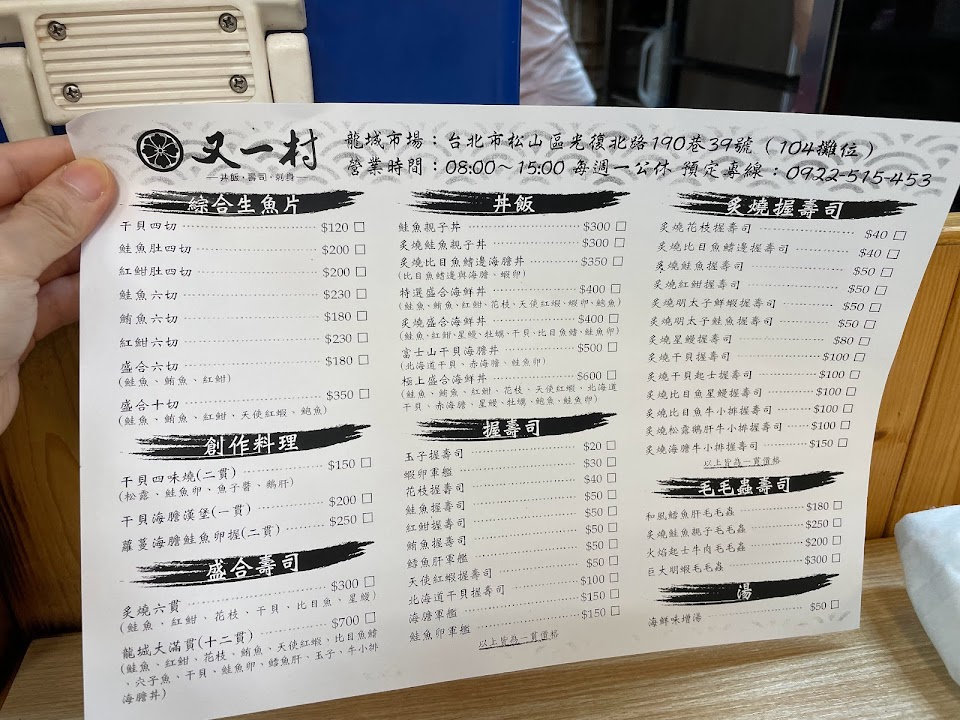 又一村
丼飯・壽司・刺身
龍城市場：台北市松山區光復北路190巷39號（104攤位）
營業時間：08:00～15:00 每週一公休 預定專線：0922-515-453
綜合生魚片
干貝四切 $120 □
鮭魚肚四切 $200 □
紅魽肚四切 $200 □
鮭魚六切 $230 □
鮪魚六切 $180 □
紅魽六切 $230 □
盛合六切 $180 □
(鮭魚、鮪魚、紅魽)
盛合十切 $350 □
(鮭魚、鮪魚、紅魽、天使紅蝦、鮑魚)
創作料理
干貝四味燒(二貫) $150 □
(松露、鮭魚卵、魚子醬、鵝肝)
干貝海膽漢堡(一貫) $200 □
蘿蔓海膽鮭魚卵握(二貫) $250 □
盛合壽司
炙燒六貫 $300 □
(鮭魚、紅魽、花枝、干貝、比目魚、星鰻)
龍城大滿貫(十二貫) $700 □
(鮭魚、紅魽、花枝、鮪魚、天使紅蝦、比目魚鰭
、穴子魚、干貝、鮭魚卵、鱈魚肝、玉子、牛小排
海膽丼)
丼飯
鮭魚親子丼 $300 □
炙燒鮭魚親子丼 $300 □
炙燒比目魚鰭邊海膽丼 $350 □
(比目魚鰭邊與海膽、蝦卵)
特選盛合海鮮丼 $400 □
(鮭魚、鮪魚、紅魽、花枝、天使紅蝦、蝦卵、鮑魚)
炙燒盛合海鮮丼 $400 □
(鮭魚、紅魽、星鰻、牡蠣、干貝、比目魚鰭、鮭魚卵)
富士山干貝海膽丼 $500 □
(北海道干貝、赤海膽、鮭魚卵)
極上盛合海鮮丼 $600 □
(鮭魚、鮪魚、紅魽、花枝、天使紅蝦、北海道
干貝、赤海膽、星鰻、牡蠣、鮑魚、鮭魚卵)
握壽司
玉子握壽司 $20 □
蝦卵軍艦 $30 □
花枝握壽司 $40 □
鮭魚握壽司 $50 □
紅魽握壽司 $50 □
鮪魚握壽司 $50 □
鱈魚肝軍艦 $50 □
天使紅蝦握壽司 $50 □
北海道干貝握壽司 $100 □
海膽軍艦 $150 □
鮭魚卵軍艦 $150 □
以上皆為一貫價格
炙燒握壽司
炙燒花枝握壽司 $40 □
炙燒比目魚鰭邊握壽司 $40 □
炙燒鮭魚握壽司 $50 □
炙燒紅魽握壽司 $50 □
炙燒明太子鮮蝦握壽司 $50 □
炙燒明太子鮭魚握壽司 $50 □
炙燒星鰻握壽司 $80 □
炙燒干貝握壽司 $100 □
炙燒干貝起士握壽司 $100 □
炙燒比目魚星鰻握壽司 $100 □
炙燒比目魚牛小排握壽司 $100 □
炙燒松露鵝肝牛小排握壽司 $100 □
炙燒海膽牛小排握壽司 $150 □
以上皆為一貫價格
毛毛蟲壽司
和風鱈魚肝毛毛蟲 $180 □
炙燒鮭魚親子毛毛蟲 $250 □
火焰起士牛肉毛毛蟲 $200 □
巨大明蝦毛毛蟲 $300 □
湯
海鮮味增湯 $50 □